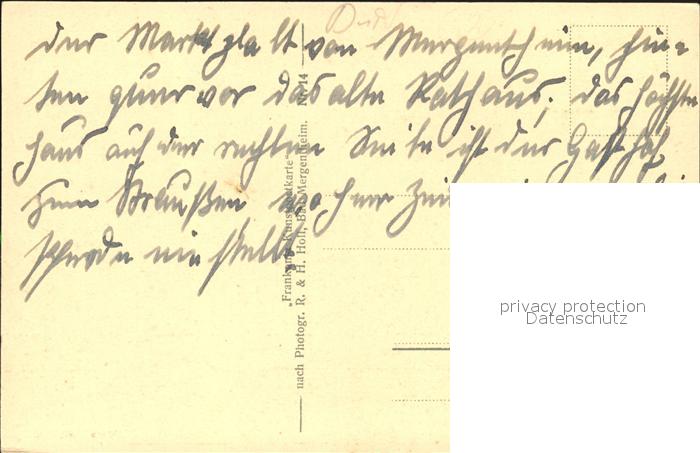 der Marktplatz von Mergentheim, hin=
ten quer vor das alte Rathaus, das höchste
Haus auf der rechten Seite ist der Gasthof
zum Straußen
Pferde einstellt
„Frankania-Kunststadtkarte“
nach Photogr. R. & H. Holl, Bad Mergentheim. Nr. 14
privacy protection
Datenschutz